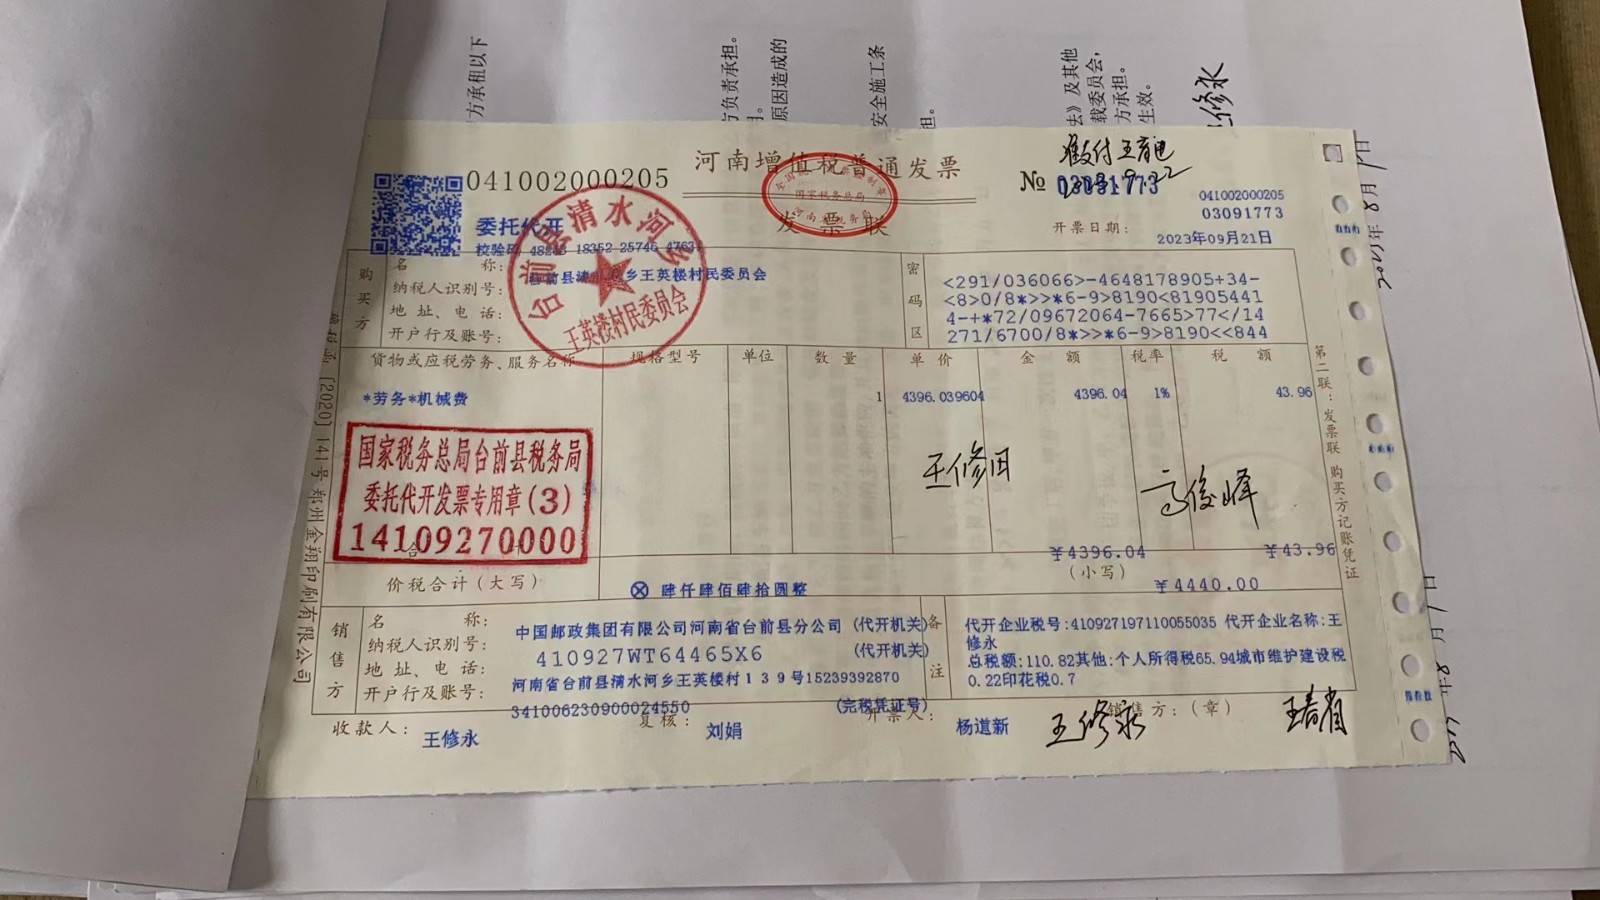 方承租以下
方负责承担。
原因造成的
安全施工条
担。
法》及其他
裁委员会,
方承担。
生效。
修永
准支付
041002000205
河南增值税普通发票
发票联
国家税务总局
№ 03091773
041002000205
03091773
委托代开
校验码 48243 18352 25746 4763
开票日期:
2023年09月21日
台前县清水河乡
王英楼村民委员会
购买方
名 称:
台前县清水河乡王英楼村民委员会
纳税人识别号:
地 址、电 话:
开户行及账号:
密码区
<291/036066>-4648178905+34-
<8>0/8*>>*6-9>8190<81905441
4-+*72/09672064-7665>77</14
271/6700/8*>>*6-9>8190<<844
货物或应税劳务、服务名称 规格型号 单位 数 量 单 价 金 额 税率 税 额
*劳务*机械费 1 4396.039604 4396.04 1% 43.96
国家税务总局台前县税务局
委托代开发票专用章(3)
14109270000
王修田
高俊峰
合
¥4396.04 ¥43.96
价税合计(大写) ⊗ 肆仟肆佰肆拾圆整 (小写) ¥4440.00
销售方
名 称: 中国邮政集团有限公司河南省台前县分公司 (代开机关)
纳税人识别号: 410927WT64465X6 (代开机关)
地 址、电 话: 河南省台前县清水河乡王英楼村139号15239392870
开户行及账号: 341006230900024550 (完税凭证号)
备注
代开企业税号:410927197110055035 代开企业名称:王
修永
总税额:110.82其他:个人所得税65.94城市维护建设税
0.22印花税0.7
收款人: 王修永 复核: 刘娟 开票人: 杨道新 销售方:(章)
王修永
王春省
第二联:发票联 购买方记账凭证
〔2020〕141号郑州金翔印刷有限公司